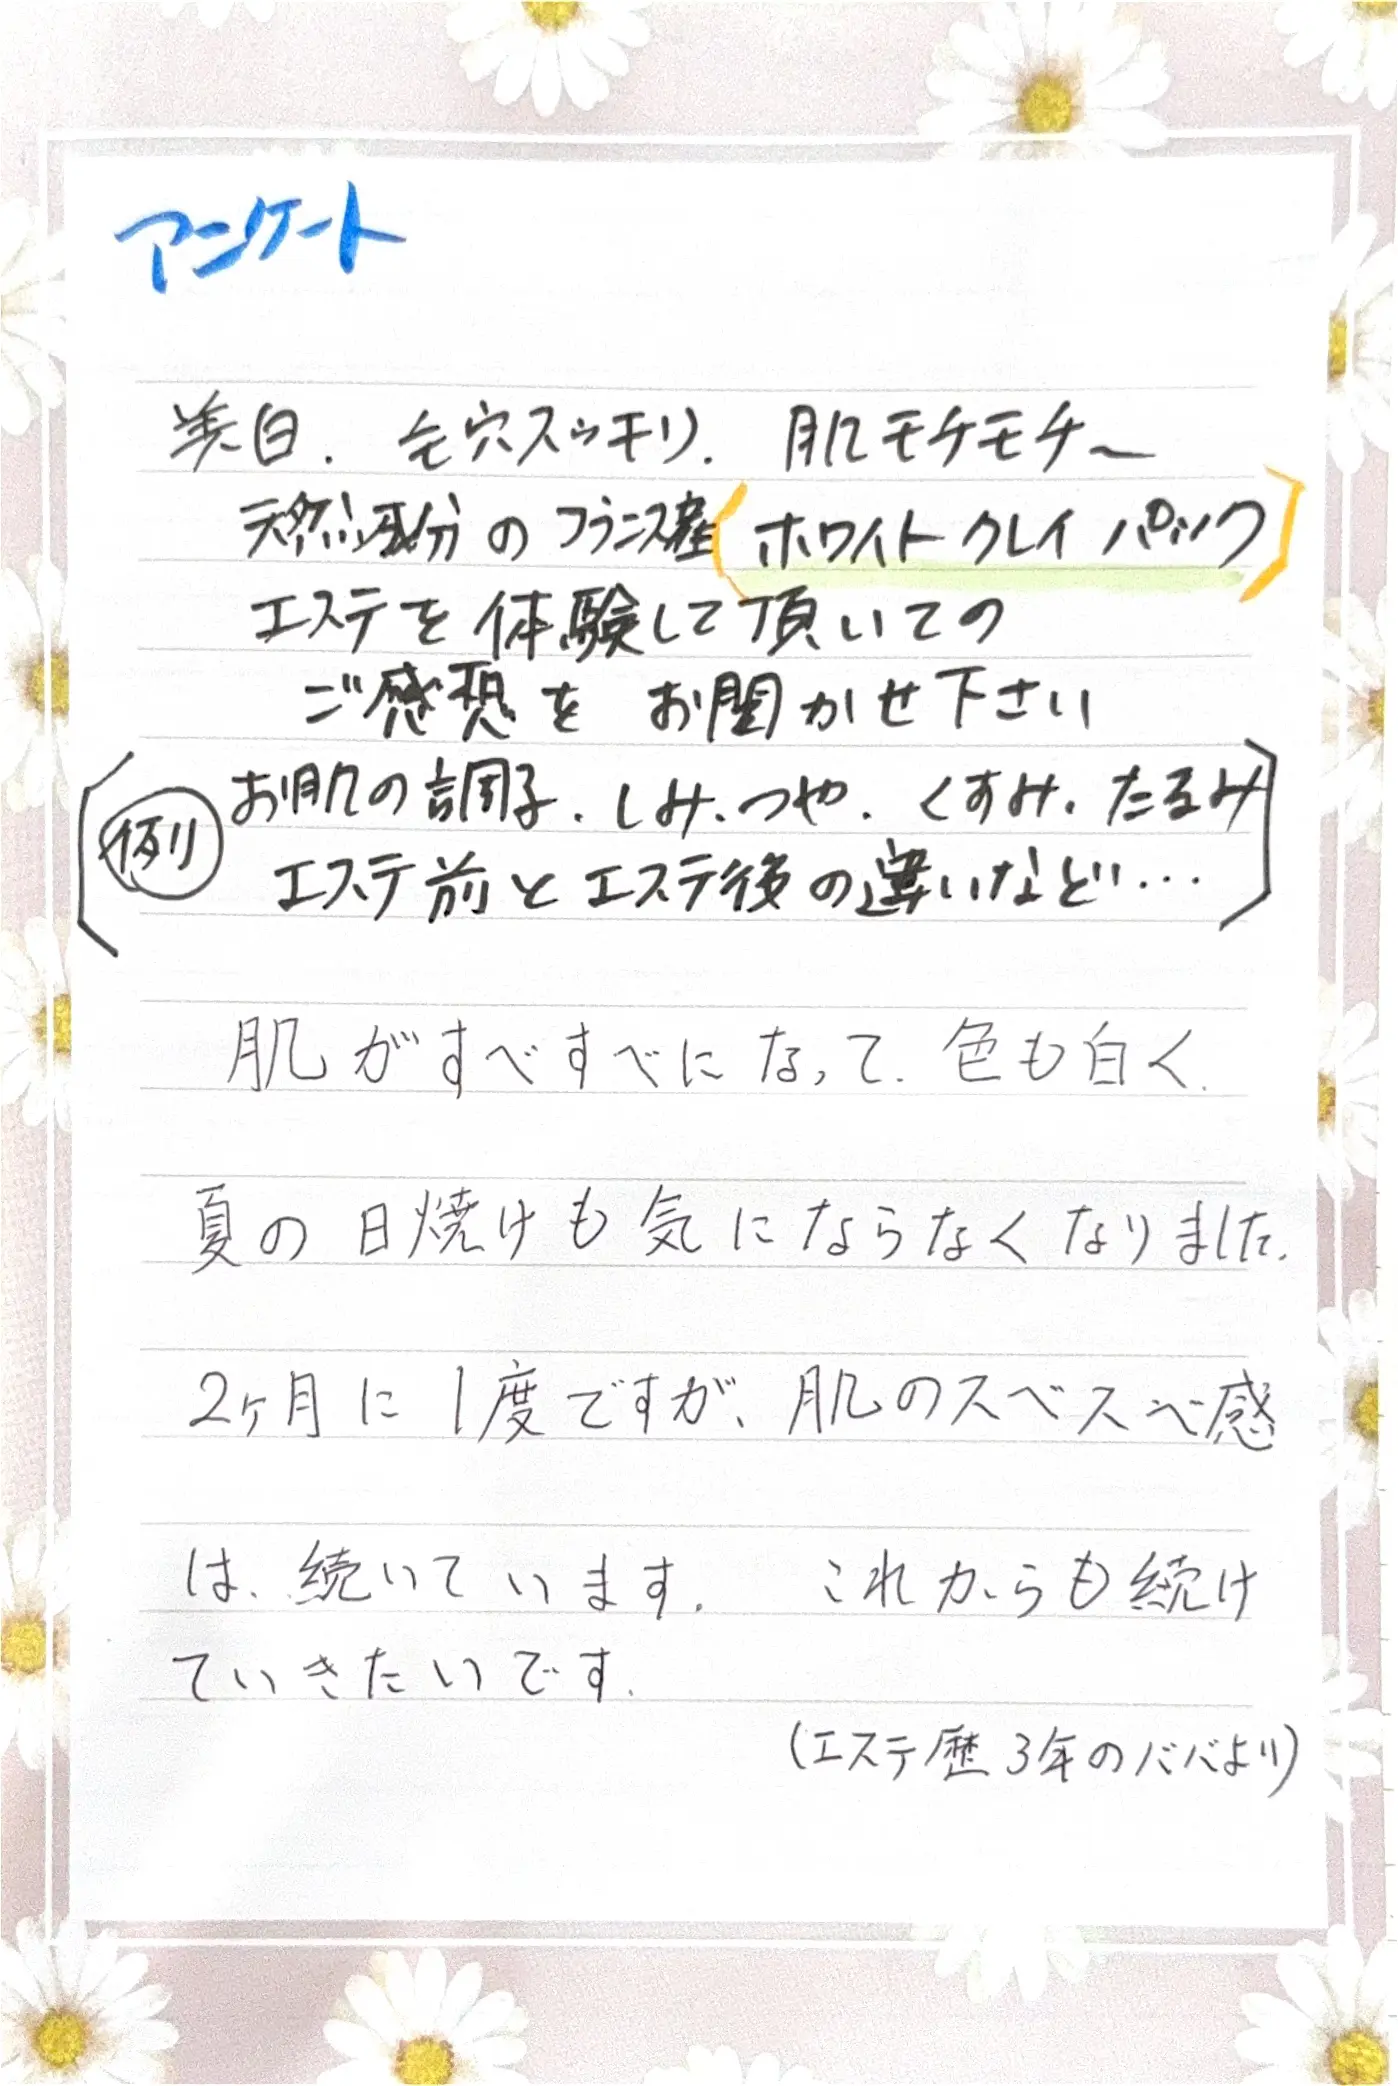 アンケート
美白. 毛穴スッキリ. 肌モチモチ〜
天然成分のフランス産(ホワイトクレイパック)
エステを体験して頂いての
ご感想をお聞かせ下さい
(例) お肌の調子.しみ.つや.くすみ.たるみ
エステ前とエステ後の違いなど…
肌がすべすべになって.色も白く.
夏の日焼けも気にならなくなりました.
2ヶ月に1度ですが、肌のスベスベ感
は、続いています. これからも続け
ていきたいです.
(エステ歴3年のババより)